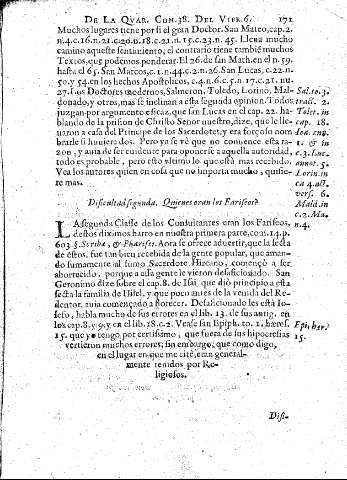 DE LA QVAR. CON.38. DEL VIER.6. 171
Muchos lugares tiene por si el gran Doctor. San Mateo, cap.2.
n.4.c.16.n.21.c.20.n.18.c.21.n.15.c.23.n. 45. Lleua mucho
camino aqueste sentimiento; el contrario tiene tambiē muchos
Textos, que podemos ponderar. El 26. de san Math. en el n. 59.
hasta el 65. San Marcos, c.1.n.44.c.2.n.26. San Lucas, c.22.n.
50. y 54. en los hechos Apostolicos, c.4.n.6.c.5.n.17.c.21.nu.
27. Los Doctores modernos, Salmeron, Toledo, Lorino, Mal-
donado, y otros, mas se inclinan a esta segunda opinion. Todos
juzgan por argumento eficaz, que san Lucas en el cap. 22. ha-
blando de la prision de Christo Señor nuestro, dize, que le lle-
uaron a casa del Principe de los Sacerdotes, y era forçoso nom
brarle si huuiera dos. Pero ya se vè que no conuence esta ra-
zon, y auia de ser euidente para oponerse a aquella autoridad,
todo es probable, pero esto vltimo lo que està mas recebido.
Vea los autores quien en cosa que no importa mucho, quisie-
re mas.
Sal.to.3.
tract. 2.
Tolet. in
cap. 18.
Ioa. ann.
1. & in
c.3. Luc.
annot. 5.
Lorin. in
ca 4. act.
vers. 6.
Mald. in
c.2. Ma.
n.4.
Dificultad segunda. Quienes eran los Fariseos?
LA segunda Classe de los Consultantes eran los Fariseos,
destos diximos harto en nuestra primera parte, con. 14. p.
603. §. Scribæ, & Pharisei. Aora se ofrece aduertir, que la secta
de estos, fue tan bien recebida de la gente popular, que aman-
do sumamente al sumo Sacerdote Hircano, començò a ser
aborrecido, porque a esta gente le vieron desaficionado. San
Geronimo dize sobre el cap. 8. de Isai, que diò principio a esta
secta la familia de Hilel, y que poco antes de la venida del Re-
dentor, auia començado a florecer. Desaficionado les està Io-
sefo, habla mucho de sus errores en el lib. 13. de sus antig. en
los cap. 8. y 9. y en el lib. 18. c. 2. Vease san Epiph. to. 1. hæres.
15. que yo tengo por certissimo, que fuera de sus hipocresias
vertieron muchos errores; sin embargo, que como digo,
en el lugar en que me citè, eran general-
mente tenidos por Re-
ligiosos.
Epi. hær.
15.
Difi-